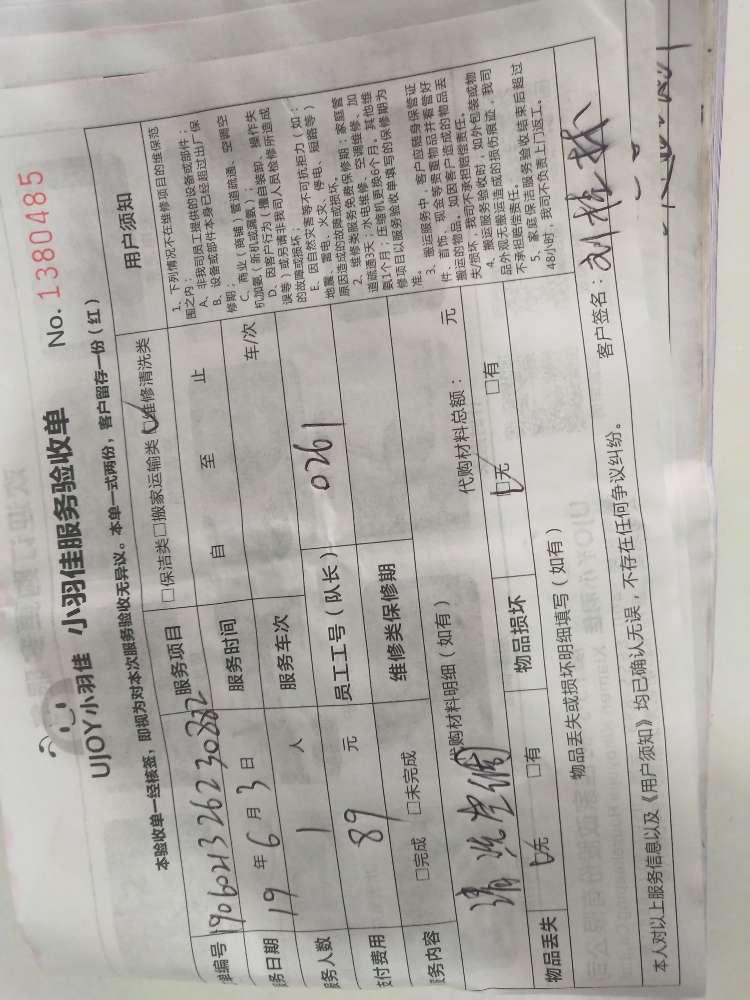 UJOY小羽佳 小羽佳服务验收单 No. 1380485
本验收单一经核签，即视为对本次服务验收无异议。本单一式两份，客户留存一份（红）
单编号 190602132623082 服务项目 □保洁类□搬家运输类□维修清洗类 用户须知
务日期 19年6月3日 服务时间 自 至 止
服务人数 1 人 服务车次 车/次
支付费用 89 元 员工工号（队长） 0261
服务内容 □完成 □未完成 维修类保修期
1、下列情况不在维修项目的维保范
围之内：
A、非我司员工提供的设备或部件；
B、设备或部件本身已经超过出厂保
修期；
C、商业（商铺）管道疏通、空调空
机加氨（新机或漏氨）；
D、因客户行为（擅自装卸、操作失
误等）或另请非我司人员检修所造成
的故障或损坏；
E、因自然灾害等不可抗拒力（如：
地震、雷电、火灾、停电、短路等）
原因造成的故障或损坏。
2、维修类服务免费保修期：家庭管
道疏通3天；水电维修、空调维修、加
氨1个月；压缩机更换6个月，其他维
修项目以服务验收单填写的保修期为
准。
3、搬运服务中，客户应随身保管证
件、首饰、现金等贵重物品并看管好
搬运的物品。如因客户造成的物品丢
失/损坏，我司不承担赔偿责任。
4、搬运服务验收时，如外包装或物
品外观无搬运造成的损伤痕迹，我司
不承担赔偿责任。
5、家庭保洁服务验收结束后超过
48小时，我司不负责上门返工。
代购材料明细（如有） 代购材料总额： 元
清洗空调
物品丢失 □无 □有 物品损坏 □无 □有
物品丢失或损坏明细填写（如有）
本人对以上服务信息以及《用户须知》均已确认无误，不存在任何争议纠纷。 客户签名：